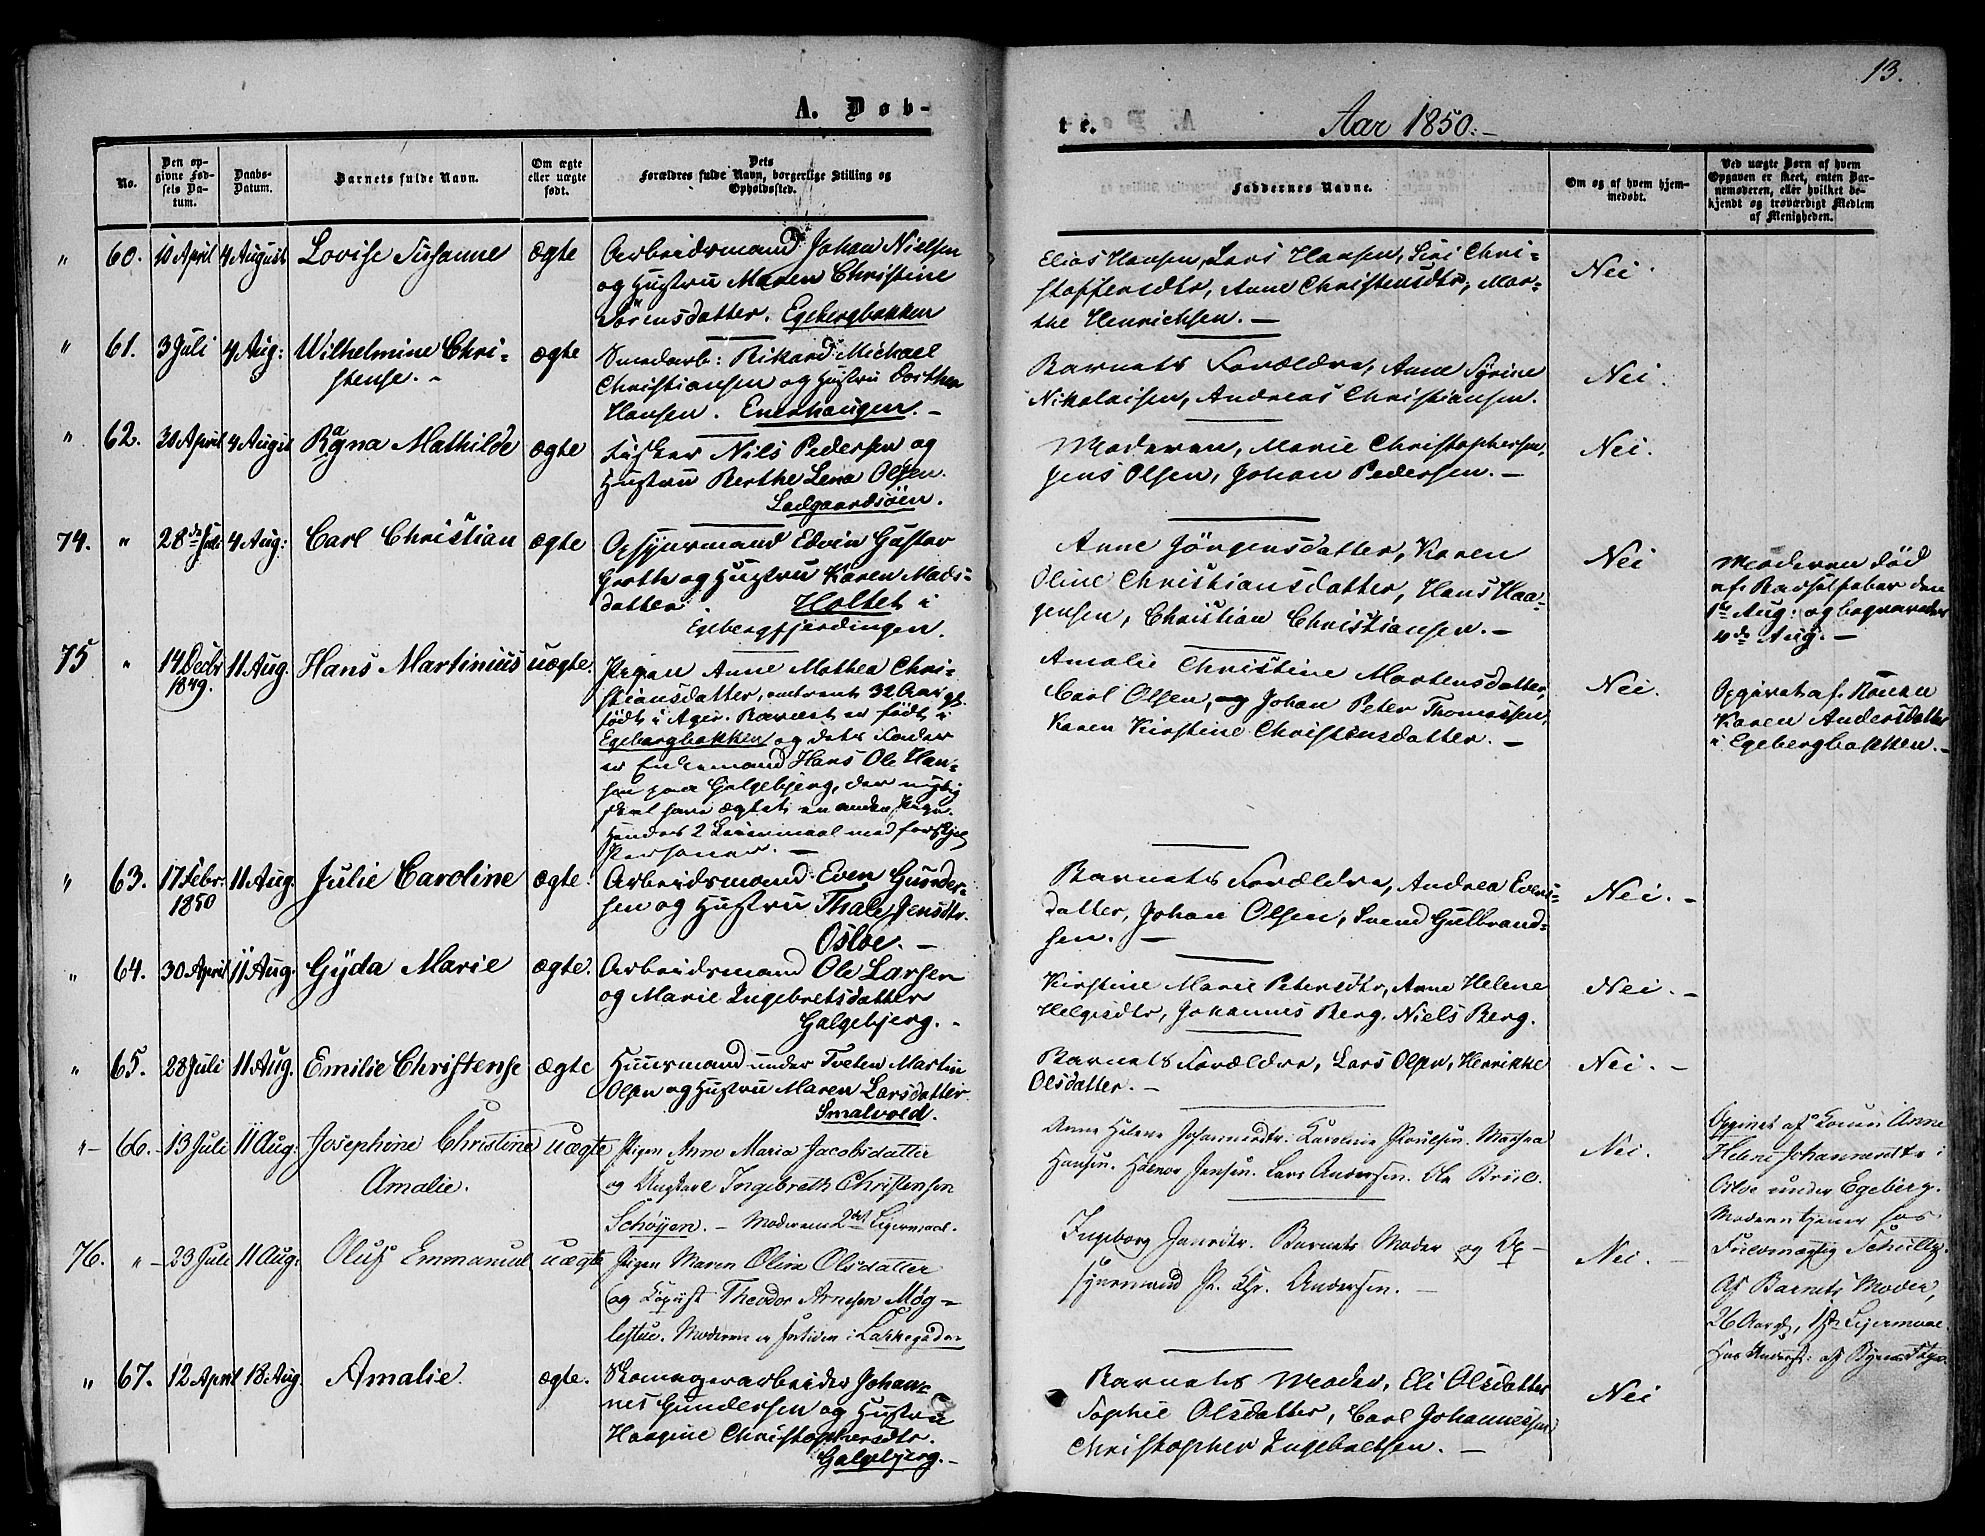 13.
A. Døb-
te.
Aar 1850.-
No.
Den op-
givne Fød-
sels Da-
tum.
Daabs-
Datum.
Barnets fulde Navn.
Om ægte
eller uægte
født.
Dets
Forældres fulde Navn, borgerlige Stilling og
Opholdssted.
Faddernes Navne.
Om og af hvem hjem-
medøbt.
Ved uægte Børn af hvem
Opgaven er skeet, enten Bar-
nemoderen, eller hvilket be-
kjendt og troværdigt Medlem
af Menigheden.
" 60. 10 April 4 August Lovise Susanne ægte
Arbeidsmand Johan Nielsen
og Hustru Maren Christine
Sörensdatter. Egebergbakken
Elias Hansen, Lars Hansen, Siri Chri-
stoffersdtr, Anne Christensdtr, Mar-
the Henrichsen. -
Nei.
" 61. 3 Juli 4 Aug: Wilhelmine Chri-
stense. - ægte
Smedearb: Rikard Michael
Christiansen og Hustru Dorthea
Hansen. Enerhaugen. -
Barnets Forældre, Anne Syrine
Nikolaisen, Andreas Christiansen.
Nei.
" 62. 30 April 4 August Ragna Mathilde ægte
Fisker Nils Pedersen og
Hustru Berthe Lena Olsen.
Ladgaardsöen.
Moderen, Marie Christophersen,
Jens Olsen, Johan Pedersen. -
Nei.
74. " 28de Juli 4 Aug: Carl Christian ægte
Opsynsmand Edvin Gustav
Groth og Hustru Karen Mads-
datter. Holtet i
Egebergfjerdingen.
Anne Jörgensdatter, Karen
Oline Christiansdatter, Hans Haa-
gensen, Christian Christiansen. -
Nei
Moderen död
af Barselfeber den
1ste Aug: og begravedes
4de Aug. -
75 " 14 Decbr
1849. 11 Aug. Hans Martinius uægte.
Pigen Anne Mathea Chri-
stiansdatter, omtrent 32 Aar gl.
födt i Ager. Barnet er födt i
Egebergbakken og dets Fader
er Enkemand Hans Ole Han-
sen paa Galgebjerg, der nylig
skal have ægtet en anden Pige.
Hendes 2 Leiermaal med forskjel
Personer. -
Amalie Christine Mortensdatter,
Carl Olsen, og Johan Peter Thomassen,
Karen Kirstine Christensdatter. -
Nei.
Opgivet af Konen
Karen Andersdatter
i Egebergbakken. -
" 63. 17 Febr.
1850 11 Aug. Julie Caroline ægte.
Arbeidsmand Even Gunder-
sen og Hustru Thale Jensdtr.
Osloe. -
Barnets Forældre, Andrea Evens-
datter, Johan Olsen, Svend Gulbrand-
sen. -
Nei. -
" 64. 30 April 11 Aug. Gyda Marie ægte.
Arbeidsmand Ole Larsen
og Marie Ingebretsdatter
Galgebjerg. -
Kirstine Marie Petersdtr, Anne Helene
Helgesdtr, Johannes Berg. Niels Berg.
Nei. -
" 65. 28 Juli 11 Aug. Emilie Christense ægte
Huusmand under Tveten Martin
Olsen og Hustru Maren Larsdatter.
Smalvold.
Barnets Forældre, Lars Olsen, Henrikke
Olsdatter. -
Nei. -
"- 66. 13 Juli 11 Aug: Josephine Christine
Amalie. uægte
Pigen Anne Maria Jacobsdatter
og Ungkarl Ingebreth Christensen
Schøyen. - Moderens 2det Lejermaal.
Anne Helene Johannesdtr. Karoline Poulsen. Mathea
Hansen. Halvor Jensen. Lars Andersen. Ole Brub.
Nei.
Opgivet af Konen Anne
Helene Johannesdtr i
Osloe under Egeberg.
Moderen tjener hos
Fuldmægtig Schultz.
76. "- 23 Juli 11 Aug: Oluf Emmanuel uægte
Pigen Maren Oline Olsdatter
og Kopist Theodor Arnesen Møg-
lestue. Moderen er fortiden i Lakkegaden
Ingeborg Jensdtr. Barnets Moder og Op-
synsmand P. Chr. Andersen. -
Nei. -
Af Barnets Moder,
26 Aar gl, 1ste Lejermaal.
" 67. 12 April 18 Aug. Amalie. ægte.
Skomagerarbeider Johan-
nes Gundersen og Hustru
Haagine Christophersdtr.
Galgebjerg. -
Barnets Moder, Eli Olsdatter
Sophie Olsdatter, Carl Johannessen
Christopher Ingebretsen. -
Nei